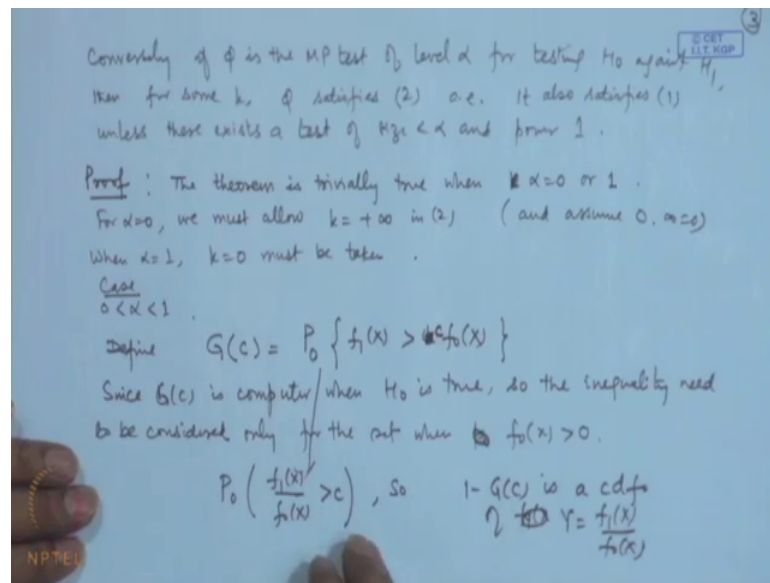 3
© CET
I.I.T. KGP
Conversely if φ is the MP test of level α for testing H₀ against H₁,
then for some k, φ satisfies (2) a.e. It also satisfies (1)
unless there exists a test of size < α and power 1.
Proof: The theorem is trivially true when α=0 or 1.
For α=0, we must allow k=+∞ in (2) (and assume 0.∞=0)
When α=1, k=0 must be taken.
Case
0<α<1.
Define G(c) = P₀ { f₁(X) > c f₀(X) }
Since G(c) is computed when H₀ is true, so the inequality need
to be considered only for the set when f₀(x)>0.
P₀ ( f₁(X)/f₀(X) > c ), so 1-G(c) is a cdf
of Y = f₁(X)/f₀(X)
NPTEL